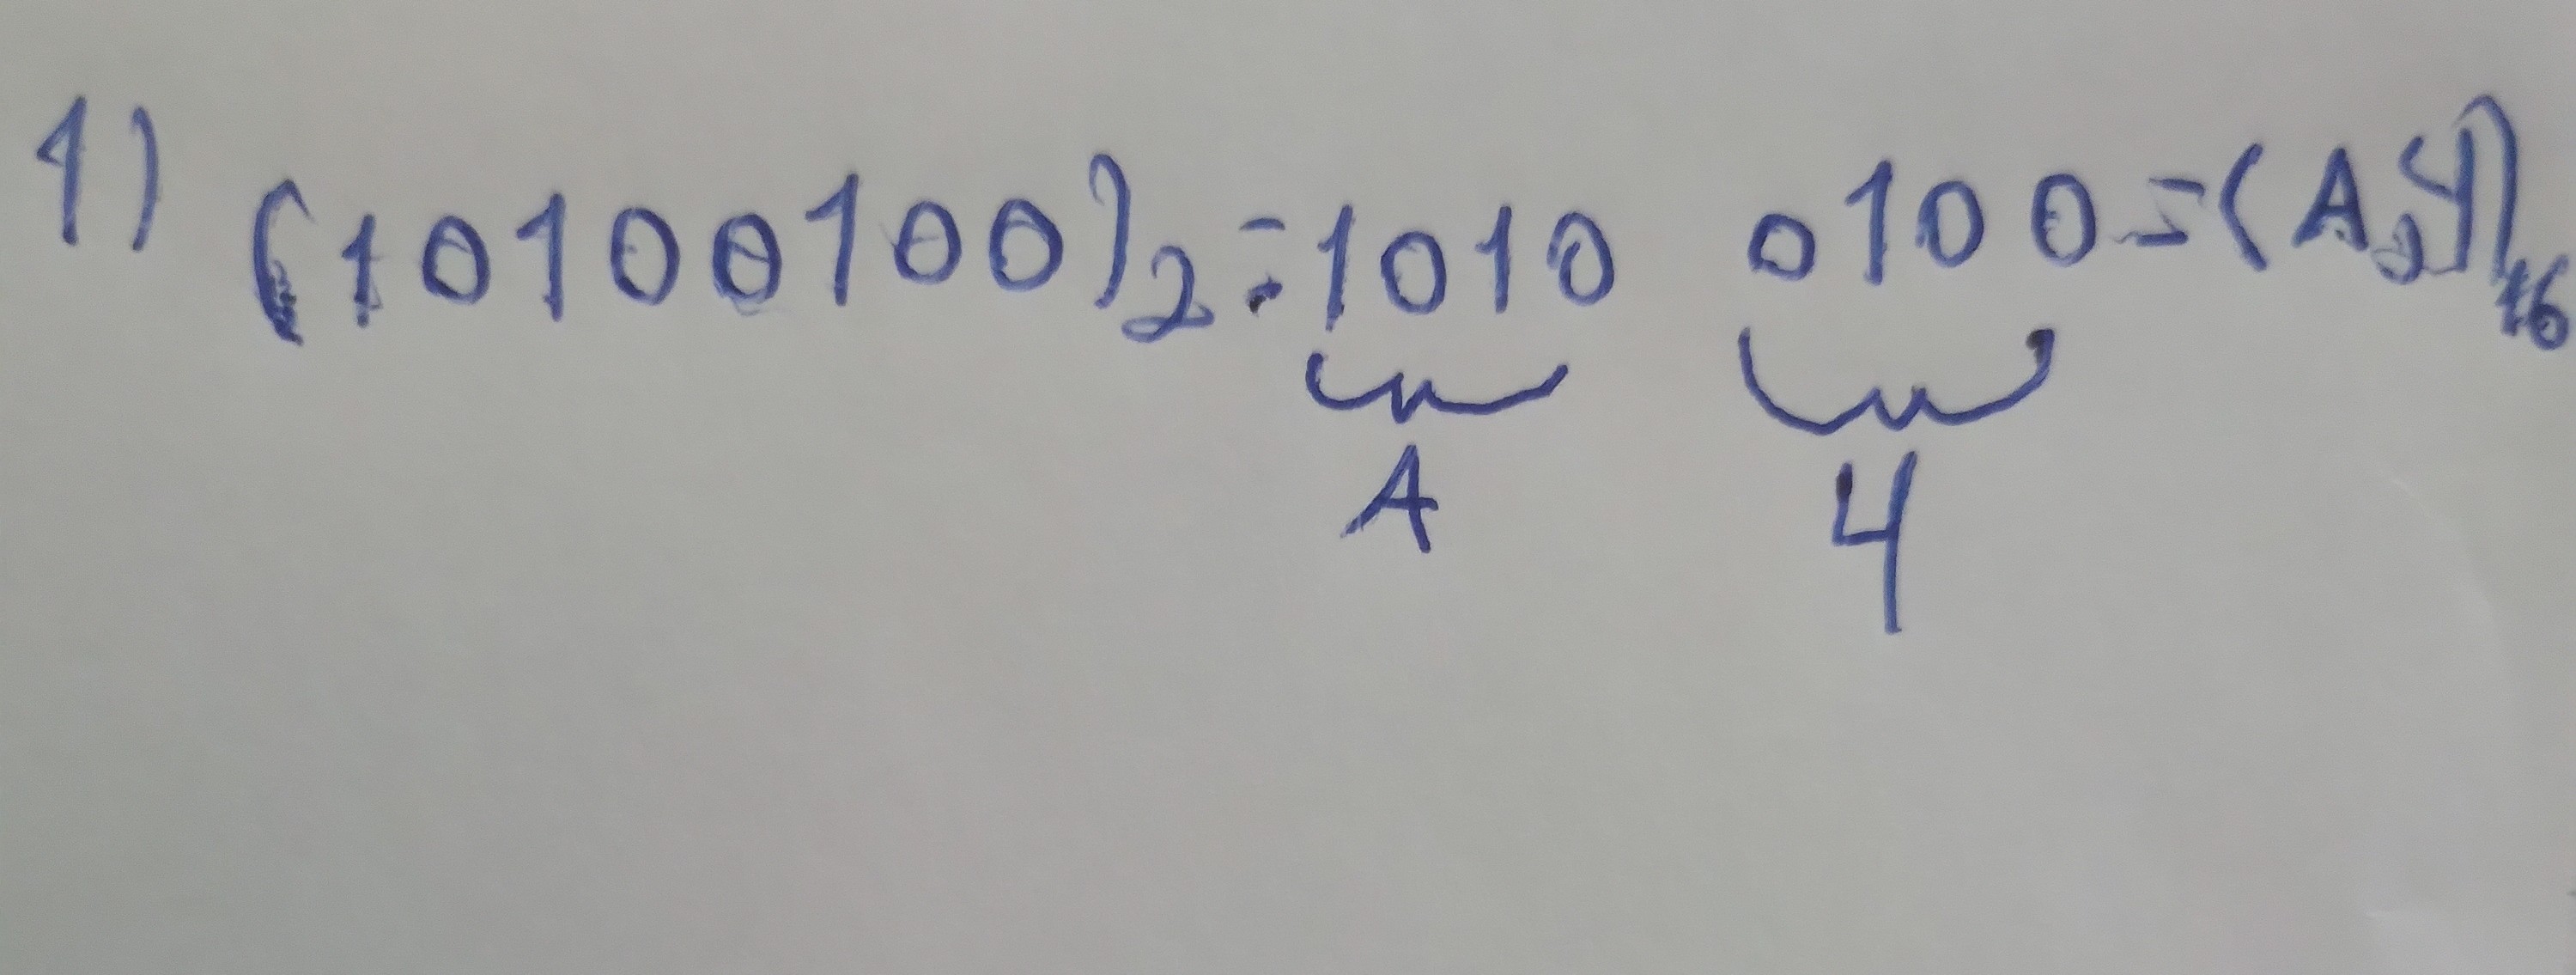 1) (10100100)2 = 1010 0100 = (A,4)16
A 4